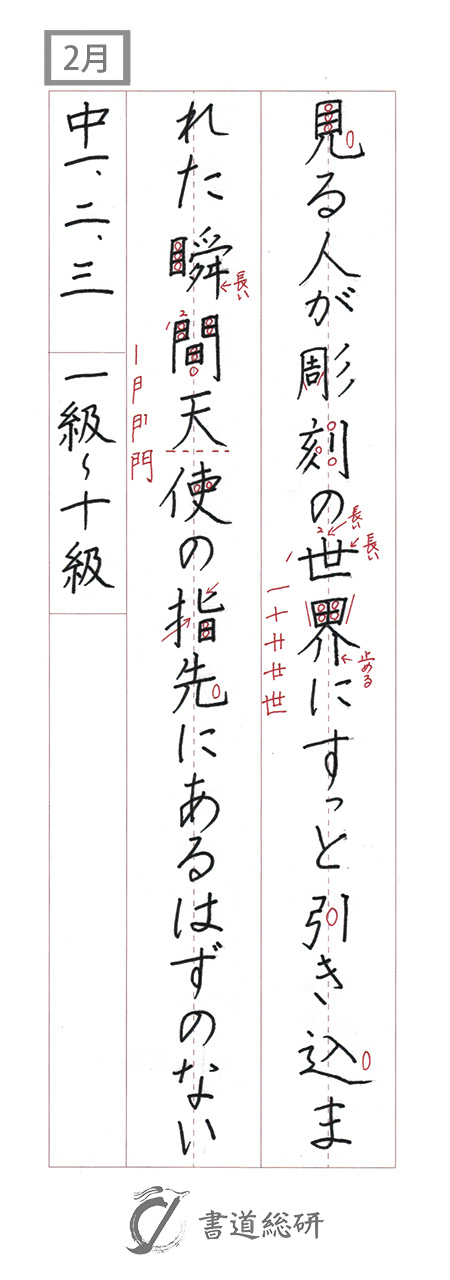 2月
見る人が彫刻の世界にすっと引き込ま
長い
長い
2
一十廿廿世
止める
れた瞬間天使の指先にあるはずのない
長い
2
丨 𠃛 門
中一、二、三 一級~十級
書道総研